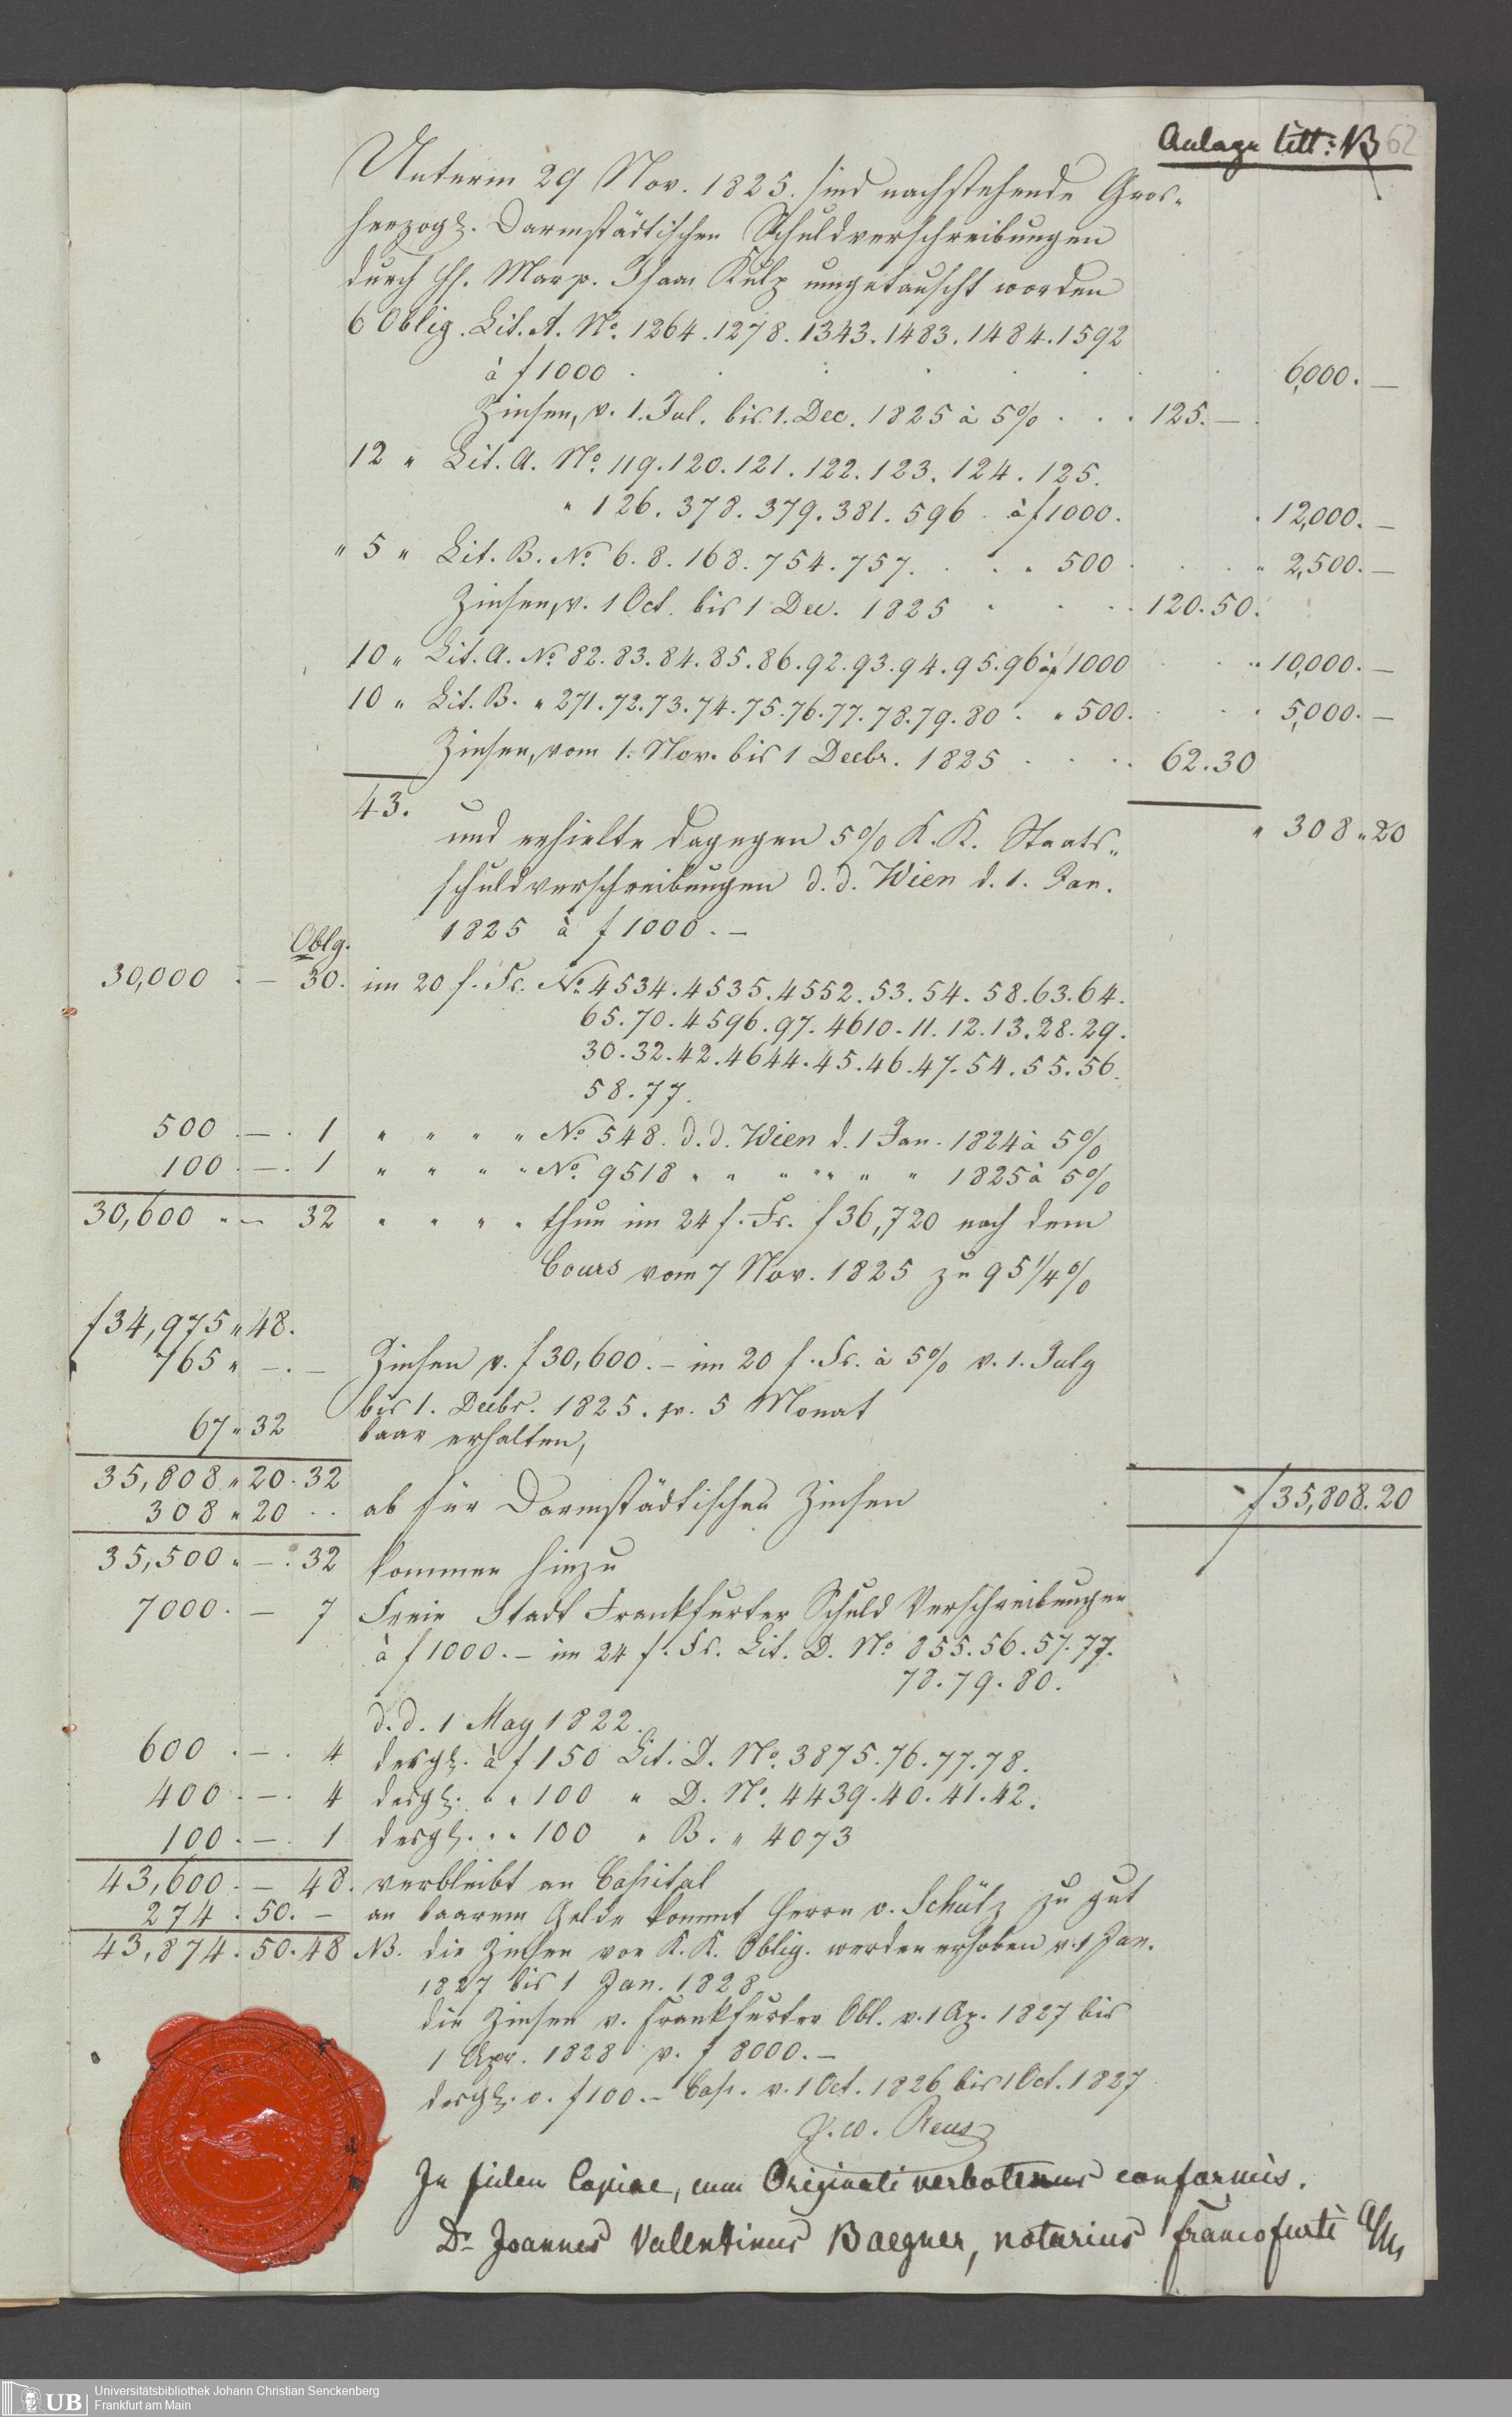 Anlage Litt: B 62
Unterm 29 Nov. 1825. sind nachstehende Gros-
herzogl. Darmstädtischen Schuldverschreibungen
durch H. Marx. Isaac Kulp umgetauscht worden
6 Oblig. Lit. A. No. 1264. 1278. 1343. 1483. 1484. 1592
à f 1000 . . . . . . . 6,000. —
Zinsen, v. 1. Jul. bis 1. Dec. 1825 à 5% . . . 125. —
12 " Lit. A. No. 119. 120. 121. 122. 123. 124. 125.
" 126. 378. 379. 381. 596 . à f 1000. . 12,000. —
" 5 " Lit. B. No. 6. 8. 168. 754. 757. . . " 500 . . . " 2,500. —
Zinsen, v. 1 Oct. bis 1 Dec. 1825 . . . . 120. 50.
10 " Lit. A. No 82. 83. 84. 85. 86. 92. 93. 94. 95. 96 à f 1000 . . " 10,000. —
10 " Lit. B. " 271. 72. 73. 74. 75. 76. 77. 78. 79. 80 . " 500. . . " 5,000. —
Zinsen, vom 1. Nov. bis 1 Decbr. 1825 . . . . 62. 30
43. " 308 " 20
und erhielte dagegen 5% K. K. Staats-
schuldverschreibungen d. d. Wien d. 1. Jan.
1825 à f 1000. —
Oblg.
30,000 . — 30. im 20 f. Fs. No. 4534. 4535. 4552. 53. 54. 58. 63. 64.
65. 70. 4596. 97. 4610. 11. 12. 13. 28. 29.
30. 32. 42. 4644. 45. 46. 47. 54. 55. 56.
58. 77.
500 . — . 1 " " " " No. 548. d. d. Wien d. 1 Jan. 1824 à 5%
100 . — . 1 " " " " No. 9518 " " " " " " 1825 à 5%
30,600 " — 32 " " " " thun im 24 f. Fs. f 36,720 nach dem
Cours vom 7 Nov. 1825 zu 95 1/4 %
f 34,975 " 48.
765 " — . — Zinsen v. f 30,600. — im 20 f. Fs. à 5% v. 1. July
bis 1. Decbr. 1825. pr. 5 Monat
67 " 32 baar erhalten,
35,808 " 20. 32
308 " 20 . . ab für Darmstädtischen Zinsen f 35,808. 20
35,500 " — . 32 kommen hinzu
7000. — 7 Freie Stadt Frankfurter Schuld Verschreibungen
à f 1000. — im 24 f. Fs. Lit. D. No. 855. 56. 57. 77.
78. 79. 80.
d. d. 1 May 1822.
600 . — . 4 desgl. à f 150 Lit. D. No. 3875. 76. 77. 78.
400 . — . 4 desgl. " " 100 " D. No. 4439. 40. 41. 42.
100 . — . 1 desgl. " " 100 " B. " 4073
43,600. — 48. verbleibt an Capital
274 . 50. — an baarem Gelde kommt Herrn v. Schütz zu gut
43,874. 50. 48 NB. die Zinsen von K. K. Oblig. werden erhoben v. 1 Jan.
1827 bis 1 Jan. 1828
die Zinsen v. Frankfurter Obl. v. 1 Ap. 1827 bis
1 Apr. 1828 v. f 8000. —
desgl. v. f 100. — Cap. v. 1 Oct. 1826 bis 1 Oct. 1827
J. W. Reus
In fidem Copiae, cum Originali verbotenus conformis.
Dr. Joannes Valentinus Baegner, notarius francofurti a/M
UB Universitätsbibliothek Johann Christian Senckenberg
Frankfurt am Main